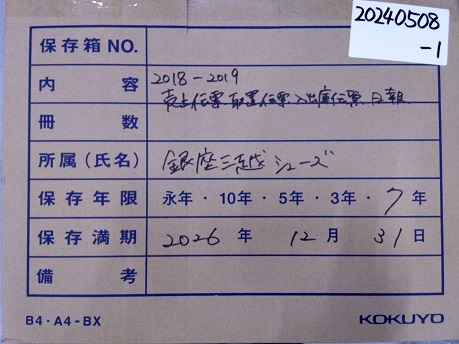 20240508
-1
保存箱 NO.
内容 2018-2019
売上伝票 取置伝票 入出庫伝票 日報
冊数
所属(氏名) 銀座三越シューズ
保存年限 永年・10年・5年・3年・7年
保存満期 2026年 12月 31日
備考
B4・A4-BX KOKUYO